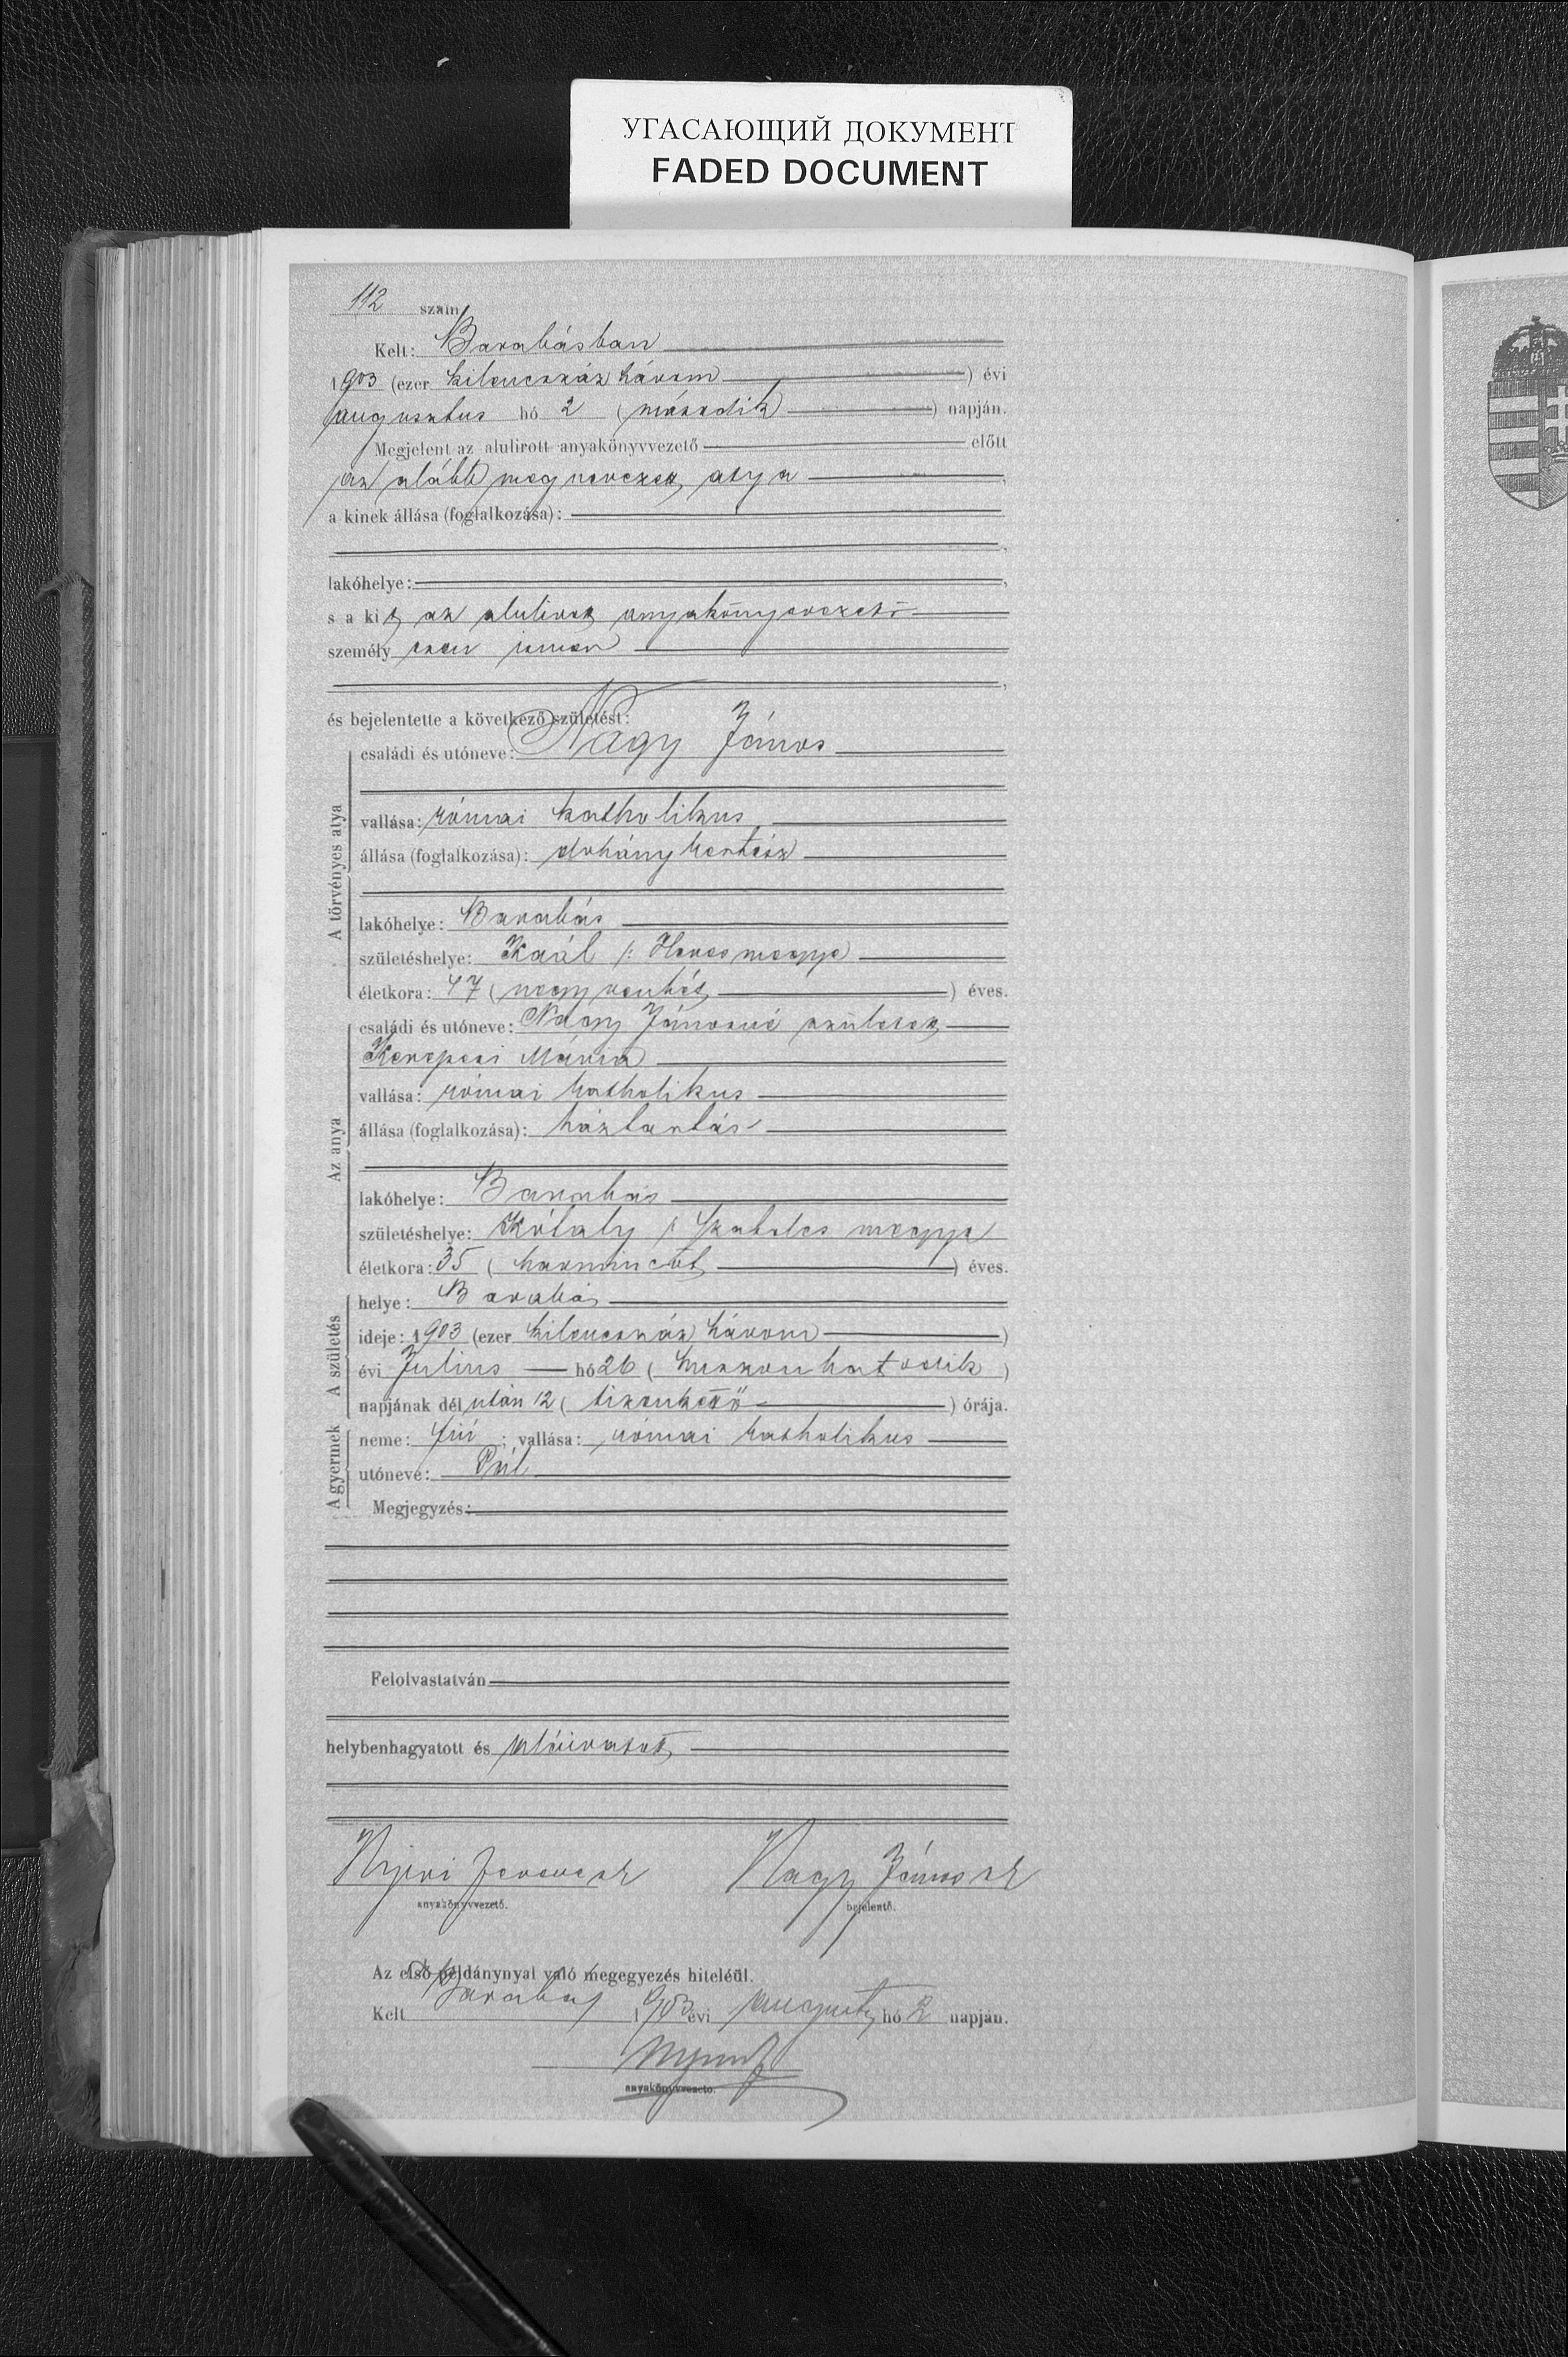 УГАСАЮЩИЙ ДОКУМЕНТ
FADED DOCUMENT
112 szám
Kelt: Barabásban
1903 (ezer kilenczszáz három) évi
augusztus hó 2 (második) napján.
Megjelent az alulirott anyakönyvvezető előtt
az alább megnevezett atya,
a kinek állása (foglalkozása):
lakóhelye:
s a kit az alulirott anyakönyvvezető
személyesen ismer
és bejelentette a következő születést:
A törvényes atya
családi és utóneve: Nagy János
vallása: római katholikus
állása (foglalkozása): dohánykertész
lakóhelye: Barabás
születéshelye: Kaál /: Heves megye
életkora: 47 (negyvenhét) éves.
Az anya
családi és utóneve: Nagy Jánosné született
Kerepesi Mária
vallása: római katholikus
állása (foglalkozása): háztartás
lakóhelye: Barabás
születéshelye: Kótaly / Szabolcs megye
életkora: 35 (harminczöt) éves.
A születés
helye: Barabás
ideje: 1903 (ezer kilenczszáz három)
évi Julius hó 26 (huszonhatodik)
napjának dél után 12 (tizenkettő) órája.
A gyermek
neme: fiú; vallása: római katholikus
utóneve: Pál
Megjegyzés:
Felolvastatván
helybenhagyatott és aláiratott
Nyiri Ferencz sk Nagy János sk
anyakönyvvezető. bejelentő.
Az első példánynyal való megegyezés hiteléül.
Kelt Barabás 1903 évi auguszt hó 2 napján.
anyakönyvvezető.